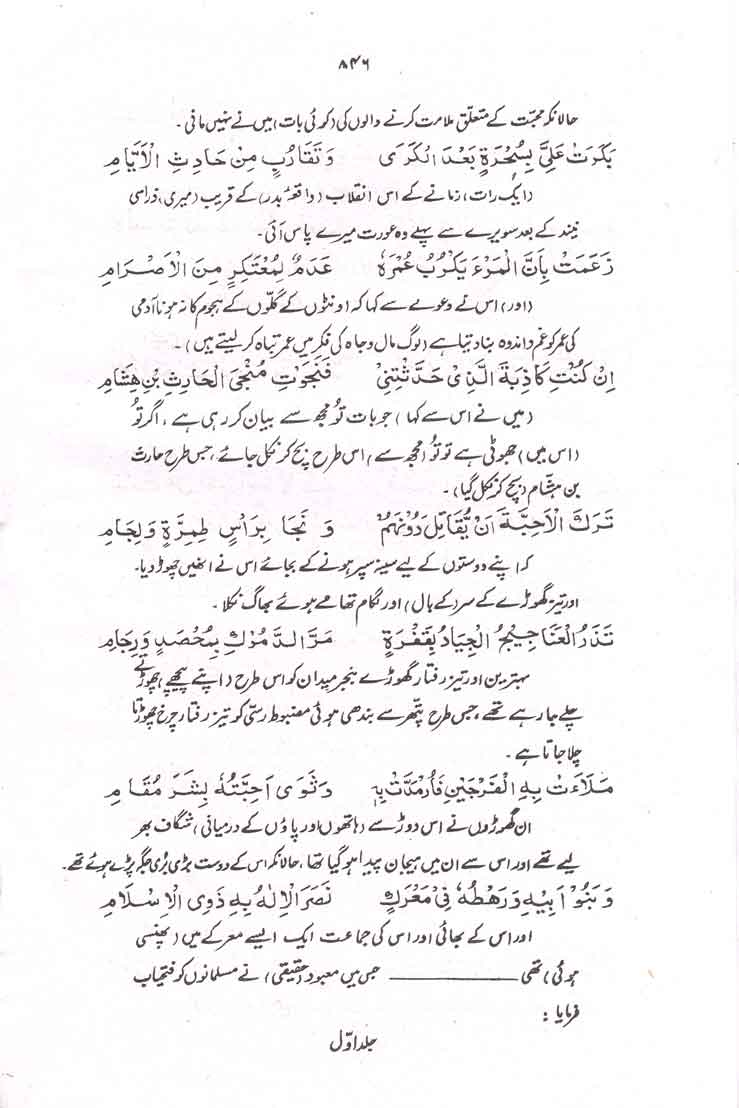 ۸۴۶
حالانکہ محبّت کے متعلق ملامت کرنے والوں کی (کوئی بات) میں نے نہیں مانی۔
بَكَرَتْ عَلَىَّ بِسُحْرَةٍ بَعْدَ الْكَرٰى وَتَقَارُبٍ مِنْ حَادِثِ الْاَيَّامِ
(ایک رات) زمانے کے اس انقلاب (واقعۂ بدر) کے قریب (میری) ذرا سی
نیند کے بعد سویرے سے پہلے وہ عورت میرے پاس آئی۔
زَعَمَتْ بِاَنَّ الْمَرْءَ يَكْرُبُ عُمْرَهٗ عَدَمٌ لِمُعْتَكِرٍ مِنَ الْاَصْرَامِ
(اور) اس نے دعوے سے کہا کہ اونٹوں کے گلّوں کے ہجوم کا نہ ہونا آدمی
کی عمر کو غم و اندوہ بنا دیتا ہے (لوگ مال و جاہ کی فکر میں عمر تباہ کر لیتے ہیں)۔
اِنْ كُنْتِ كَاذِبَةَ الَّذِىْ حَدَّثْتِنِىْ فَنَجَوْتِ مُنْجَى الْحَارِثِ بْنِ هِشَامِ
(میں نے اس سے کہا) جو بات تُو مجھ سے بیان کر رہی ہے، اگر تُو
(اس میں) جھوٹی ہے تو تُو (مجھ سے) اس طرح بچ کر نکل جائے، جس طرح حارث
بن ہشام (بچ کر نکل گیا)۔
تَرَكَ الْاَحِبَّةَ اَنْ يُّقَاتِلَ دُوْنَهُمْ وَنَجَا بِرَاْسِ طِمِرَّةٍ وَلِجَامِ
کہ اپنے دوستوں کے لیے سینہ سپر ہونے کے بجائے اس نے انھیں چھوڑ دیا۔
اور تیز گھوڑے کے سر (کے بال) اور لگام تھامے ہوئے بھاگ نکلا۔
تَذَرُ الْعَنَاجِيْجُ الْجِيَادُ بِقَفْرَةٍ مَرَّ الدَّمُوْكِ بِمُحْصَدٍ وَرِجَامِ
بہترین اور تیز رفتار گھوڑے بنجر میدان کو اس طرح (اپنے پیچھے) چھوڑتے
چلے جا رہے تھے، جس طرح پتّھر سے بندھی ہوئی مضبوط رسّی کو تیز رفتار چرخ چھوڑتا
چلا جاتا ہے۔
مَلَاَتْ بِهِ الْفَرْجَيْنِ فَارْمَدَّتْ بِهٖ وَثَوٰى اَحِبَّتُهٗ بِشَرِّ مُقَامِ
ان گھوڑوں نے اس دوڑ سے (ہاتھوں اور پاؤں کے درمیانی) شگاف بھر
لیے تھے اور اس سے ان میں ہیجان پیدا ہو گیا تھا، حالانکہ اس کے دوست بڑی بُری جگہ پڑے ہوئے تھے۔
وَبَنُوْا اَبِيْهِ وَرَهْطُهٗ فِىْ مَعْرَكٍ نَصَرَ الْاِلٰهُ بِهٖ ذَوِى الْاِسْلَامِ
اور اس کے بھائی اور اس کی جماعت ایک ایسے معرکے میں (پھنسی
ہوئی) تھی ــــــــــــ جس میں معبود (حقیقی) نے مسلمانوں کو فتحیاب
فرمایا:
جلد اوّل